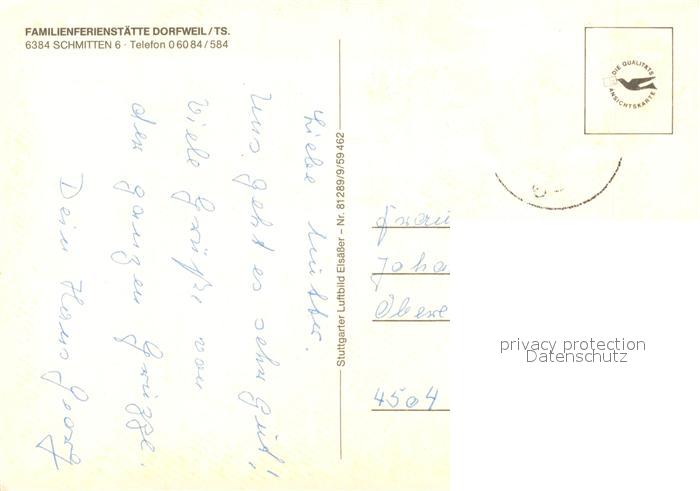 FAMILIENFERIENSTÄTTE DORFWEIL/TS.
6384 SCHMITTEN 6 · Telefon 0 60 84 / 584
Liebe Mutter.
Uns geht es sehr gut!
Viele Grüße von
der ganzen Gruppe.
Dein Hans Georg
Stuttgarter Luftbild Elsäßer – Nr. 81289/9/59 462
DIE QUALITÄTS
ANSICHTSKARTE
Frau
Joha
Obere
4504
privacy protection
Datenschutz